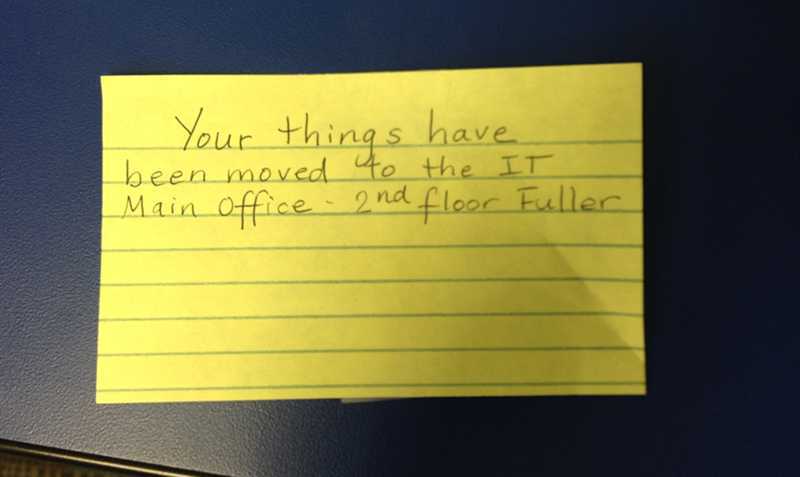 Your things have
been moved to the IT
Main Office - 2nd floor Fuller